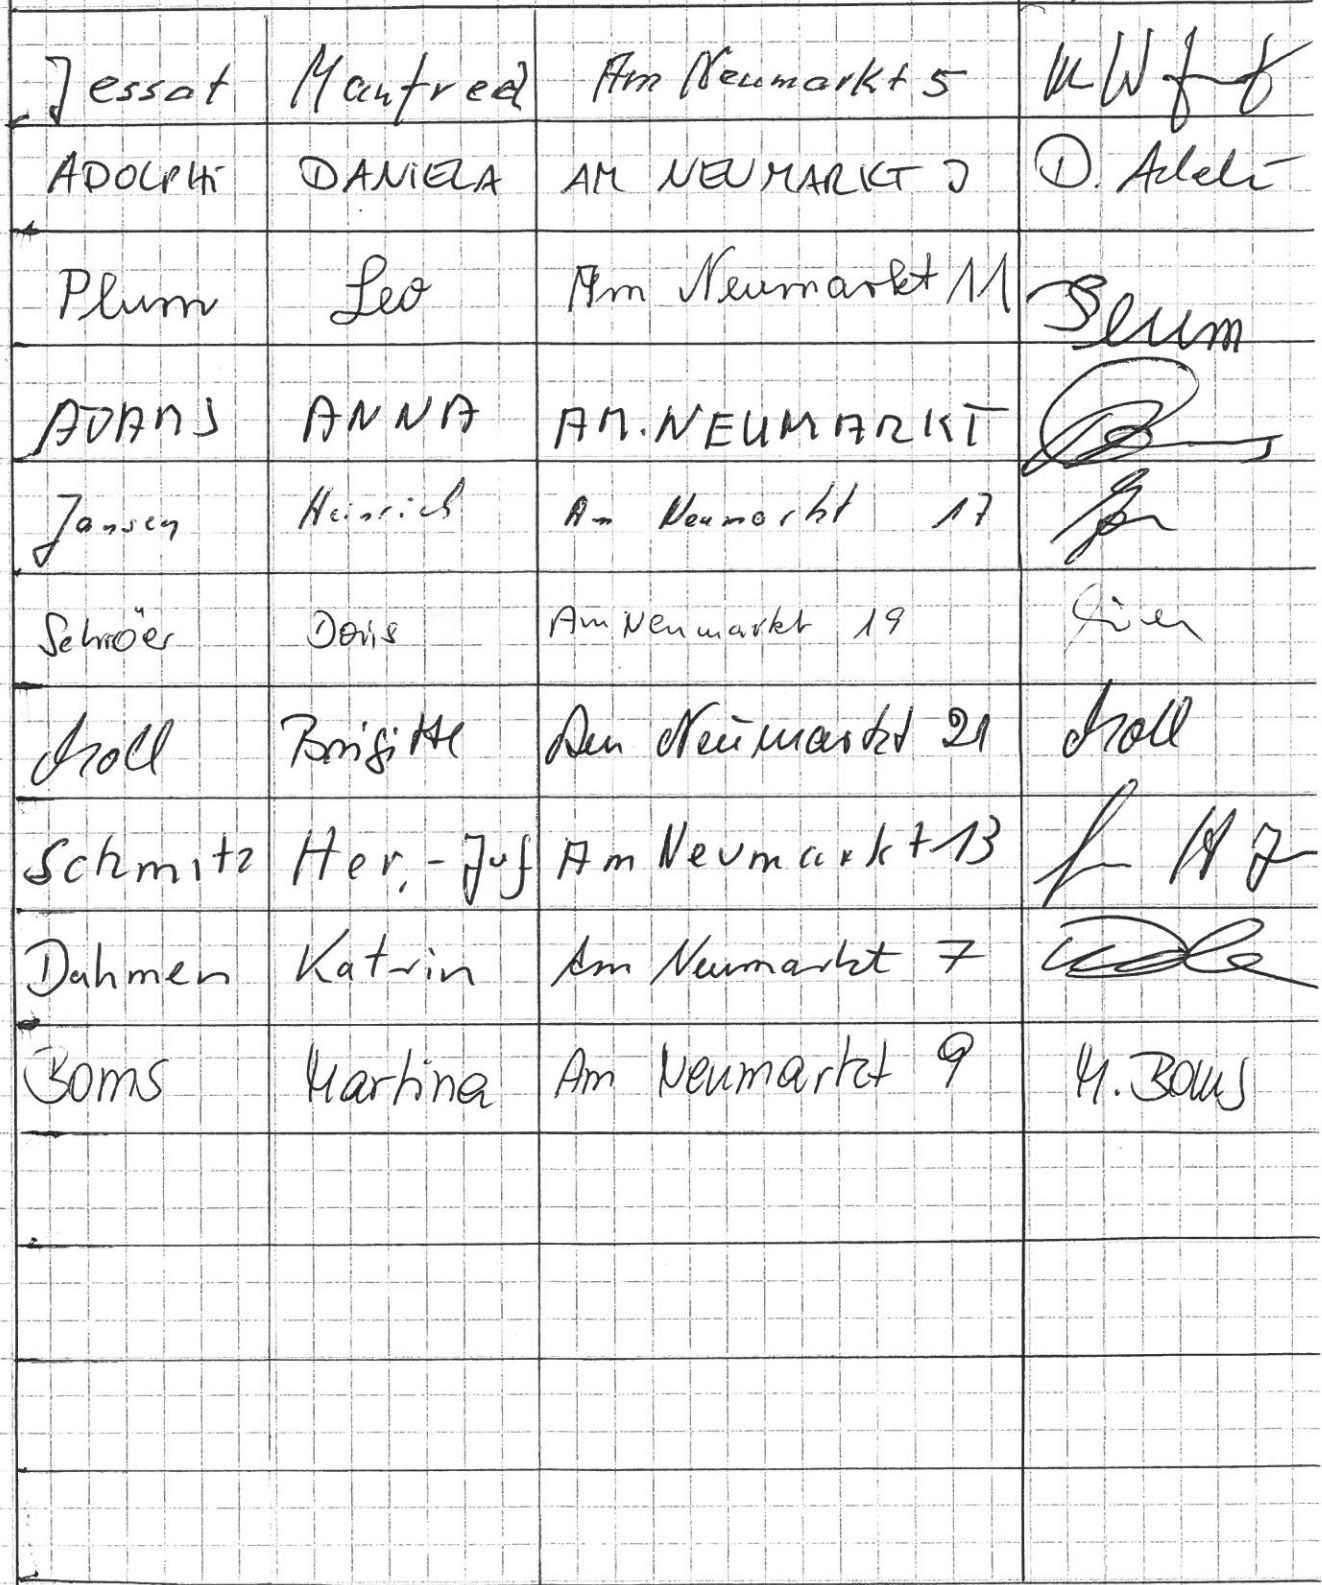 Jessat Manfred Am Neumarkt 5
ADOLPHI DANIELA AM NEUMARKT D. Adolphi
Plum Leo Am Neumarkt 11 Plum
ADAMS ANNA AM. NEUMARKT
Jansen Heinrich Am Neumarkt 17
Schröer Doris Am Neumarkt 19
Brigitte Am Neumarkt 21
Schmitz Her.-Jos Am Neumarkt 13
Dahmen Katrin Am Neumarkt 7
Boms Martina Am Neumarkt 9 M. Boms